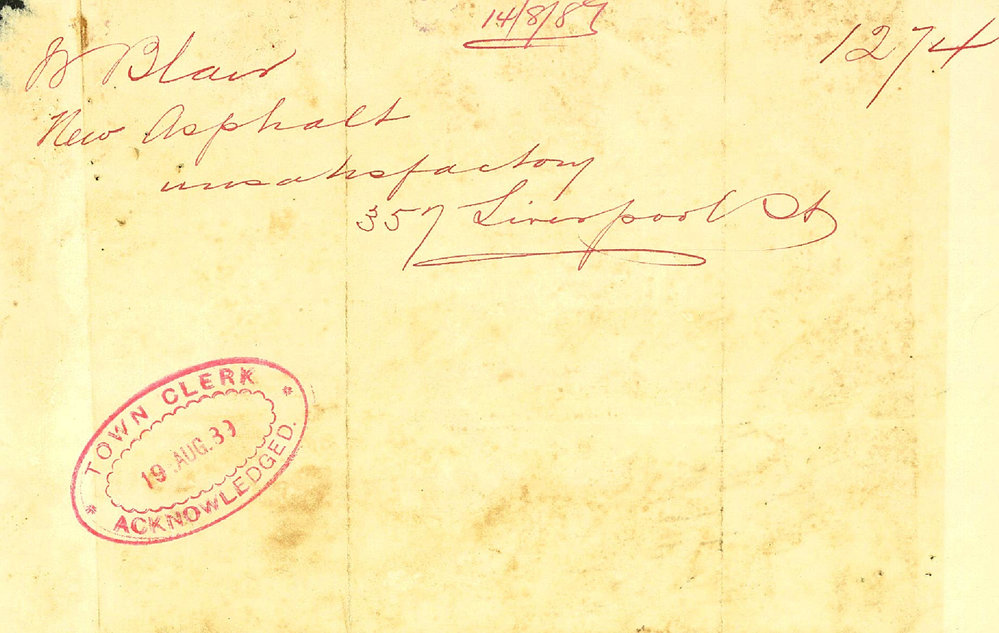 14/8/87
1274
W Blair
New Asphalt
unsatisfactory
357 Liverpool St
TOWN CLERK
19 AUG. 8
ACKNOWLEDGED.